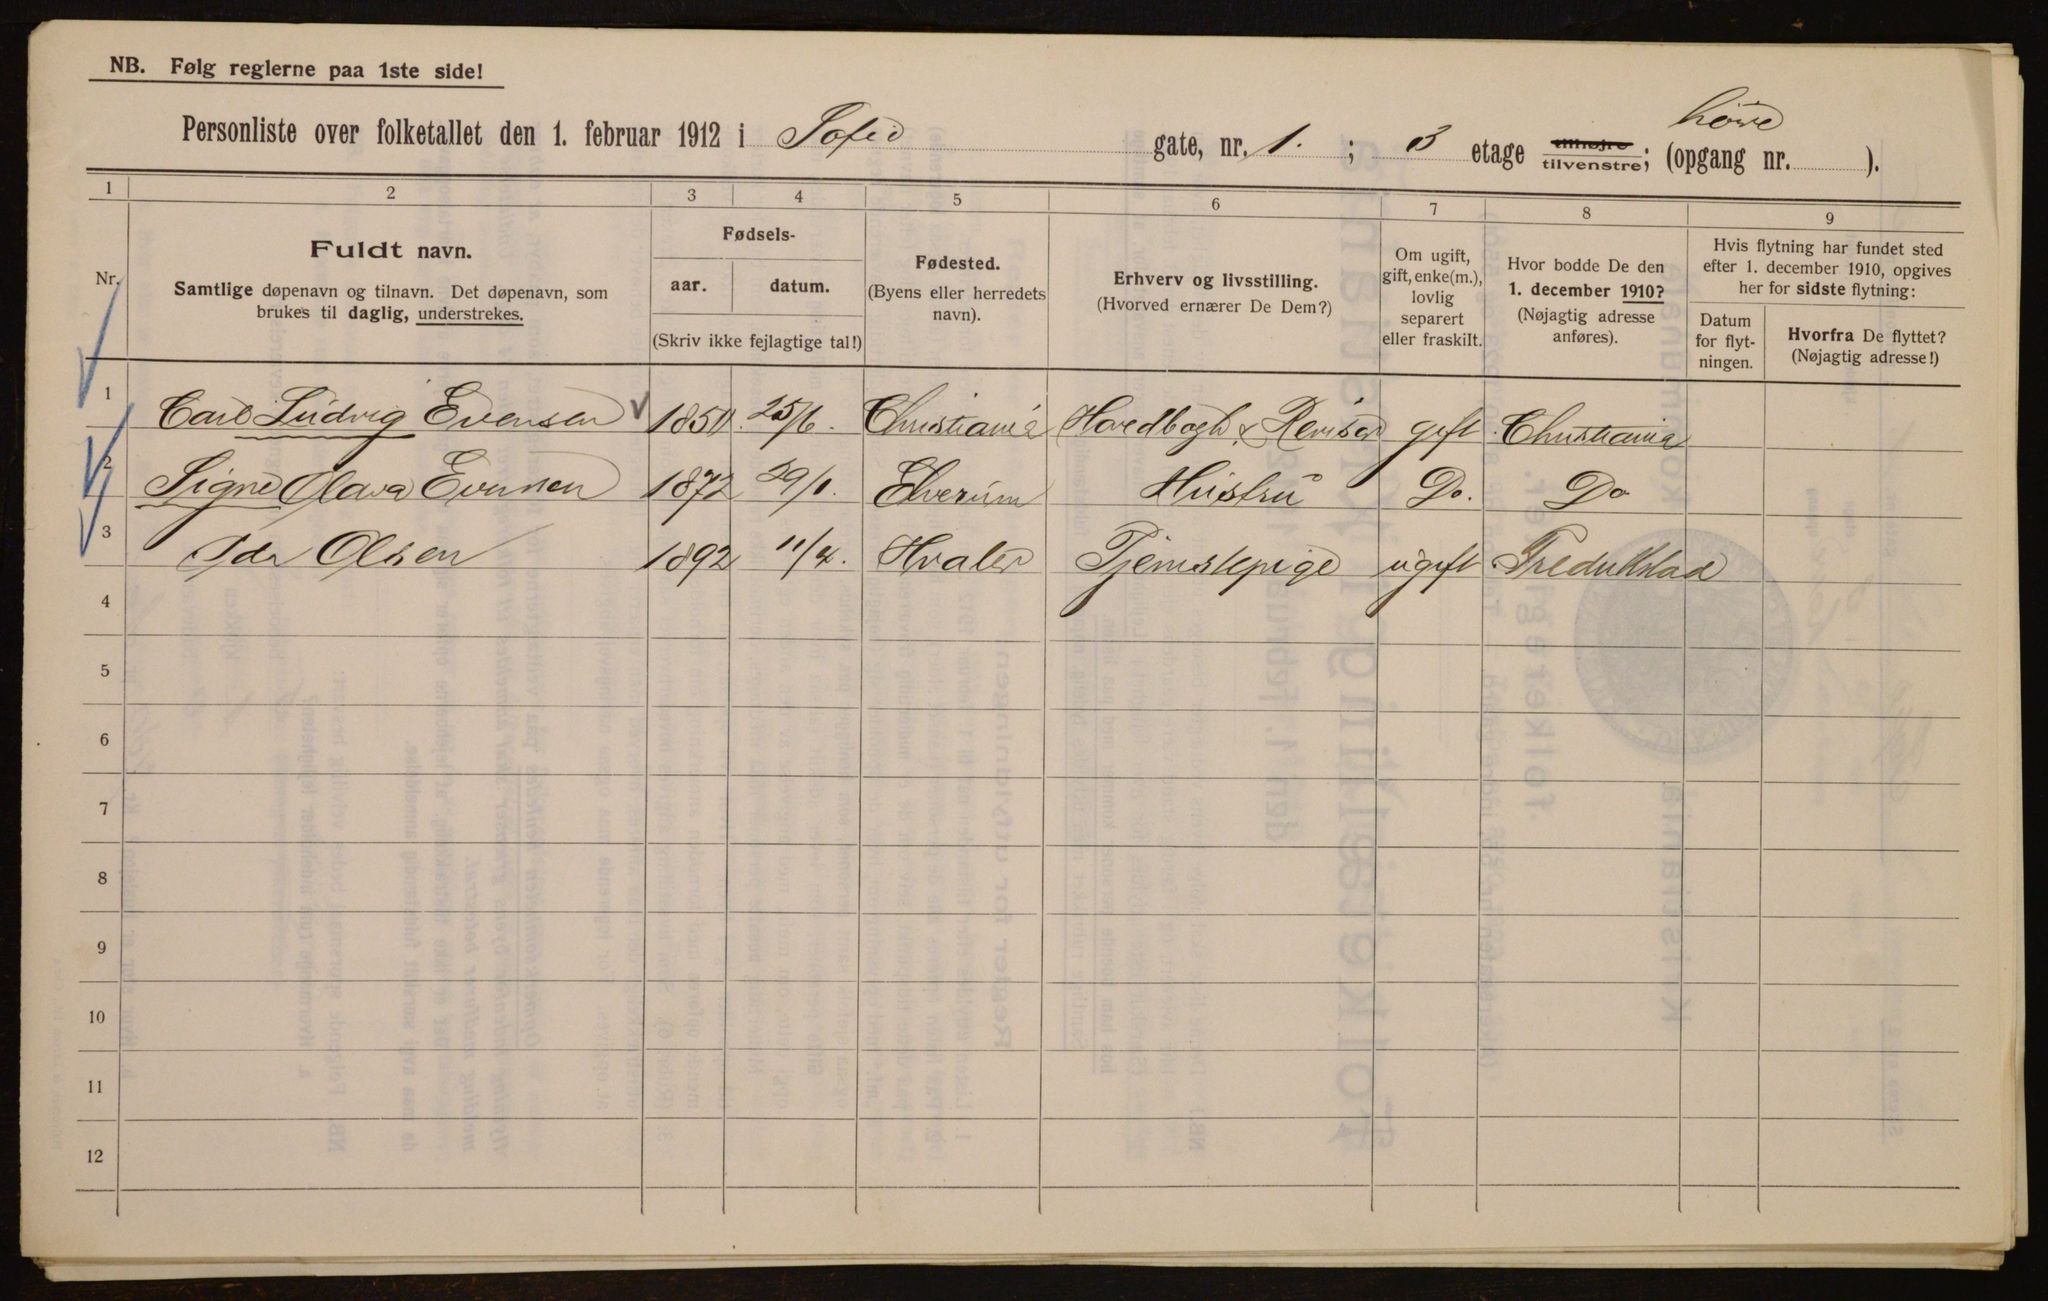 NB. Følg reglerne paa 1ste side!
høire
Personliste over folketallet den 1. februar 1912 i Sofie gate, nr. 1. ; 3 etage tilhøjre tilvenstre; (opgang nr. ).
1 2 3 4 5 6 7 8 9
Nr.
Fuldt navn.
Samtlige døpenavn og tilnavn. Det døpenavn, som
brukes til daglig, understrekes.
Fødsels-
aar. datum.
(Skriv ikke fejlagtige tal!)
Fødested.
(Byens eller herredets
navn).
Erhverv og livsstilling.
(Hvorved ernærer De Dem?)
Om ugift,
gift, enke(m.),
lovlig
separert
eller fraskilt.
Hvor bodde De den
1. december 1910?
(Nøjagtig adresse
anføres).
Hvis flytning har fundet sted
efter 1. december 1910, opgives
her for sidste flytning:
Datum
for flyt-
ningen.
Hvorfra De flyttet?
(Nøjagtig adresse!)
1 Carl Ludvig Evensen 25/6. Christiania Hovedbogh. & Revisor gift Christiania
2 Signe Olava Evensen 1872 29/1. Elverum Hustru Do. Do
3 Ida Olsen 1892 11/4. Hvaler Tjenstepige ugift Fredrikstad
4
5
6
7
8
9
10
11
12